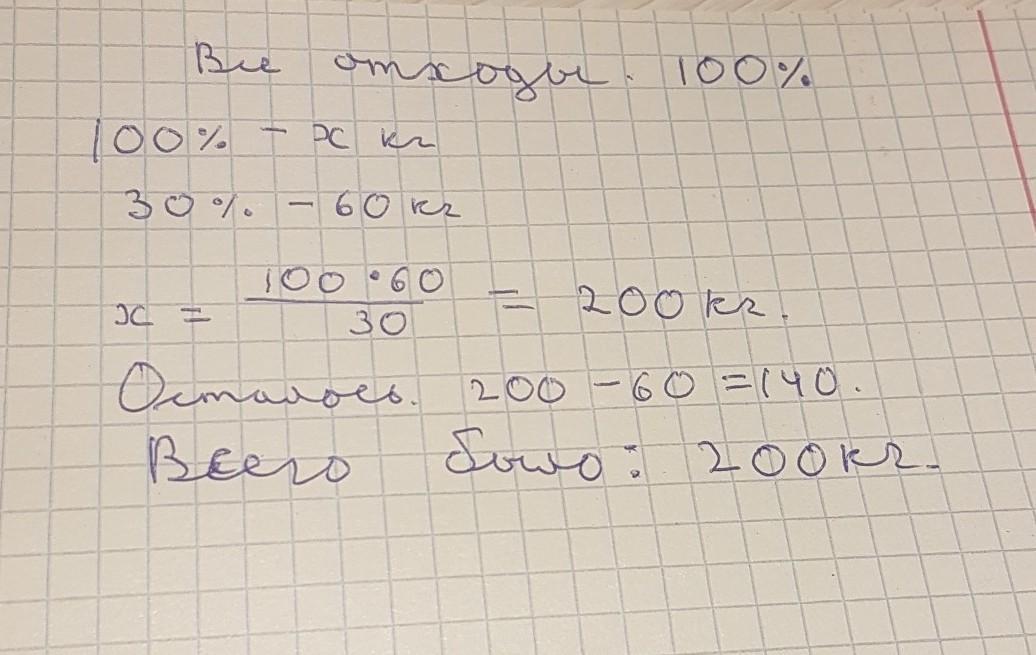 Все отходы. 100%
100% - x кг
30% - 60 кг
x = \frac{100 \cdot 60}{30} = 200 кг.
Осталось. 200 - 60 = 140.
Всего было: 200 кг.